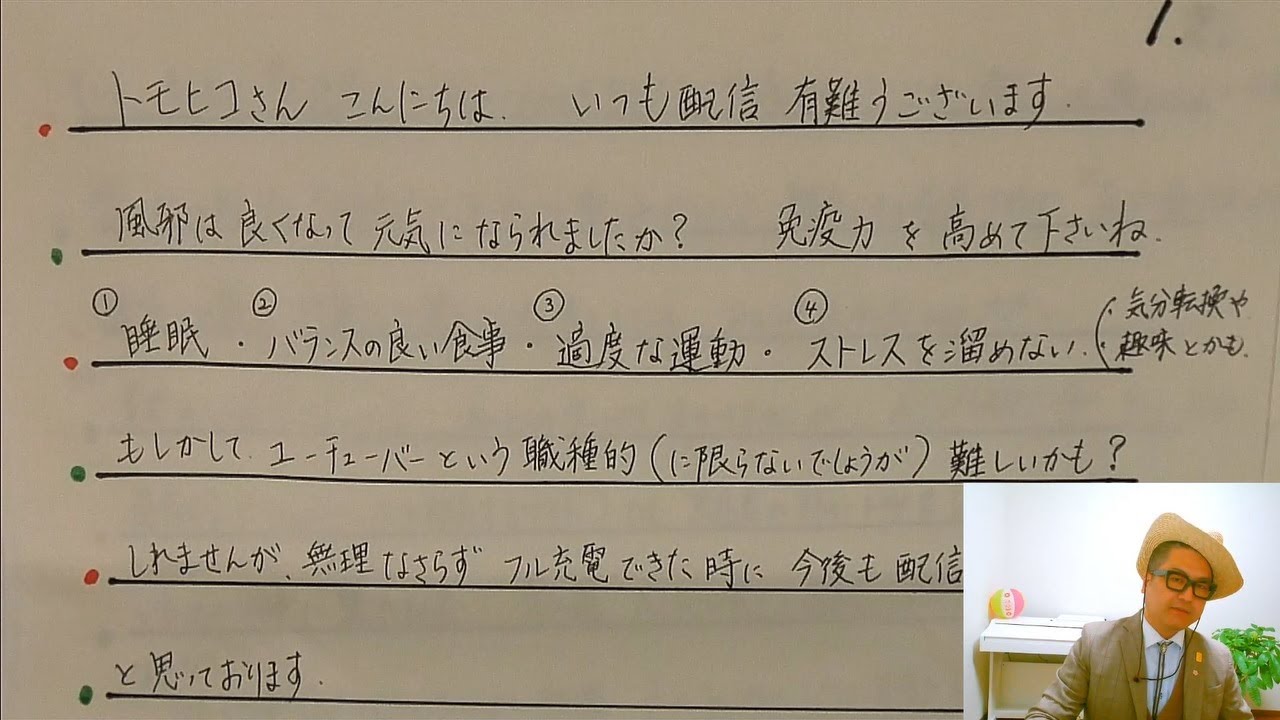 1.
トモヒコさん こんにちは. いつも配信 有難うございます.
風邪は良くなって 元気になられましたか? 免疫力を高めて下さいね.
① ② ③ ④
睡眠・バランスの良い食事・適度な運動・ストレスを溜めない. (・気分転換や
・趣味とかも.
もしかして. ユーチューバーという職種的(に限らないでしょうが)難しいかも?
しれませんが、無理なさらず フル充電できた時に 今後も配信
と思っております.